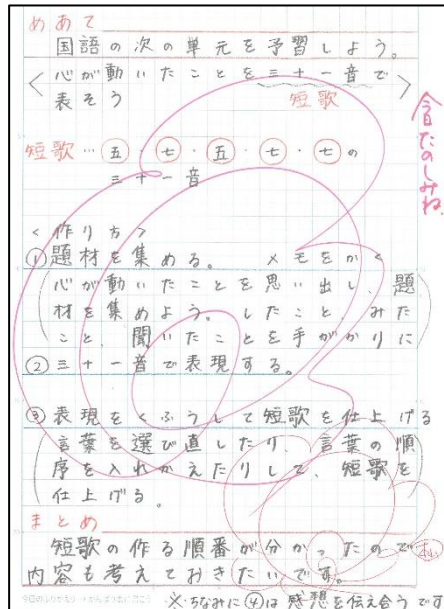 めあて
国語の次の単元を予習しよう。
〈心が動いたことを三十一音で
表そう〉
短歌
短歌…五・七・五・七・七の
三十一音
〈作り方〉
①題材を集める。 メモをかく
(心が動いたことを思い出し、題
材を集めよう。したこと、みた
こと、聞いたことを手がかりに)
②三十一音で表現する。
③表現をくふうして短歌を仕上げる
(言葉を選び直したり、言葉の順
序を入れかえたりして、短歌を
仕上げる。)
まとめ
短歌の作る順番が分かったので
内容も考えておきたいです。
※ちなみに④は感想を伝え合うです
たのしみね